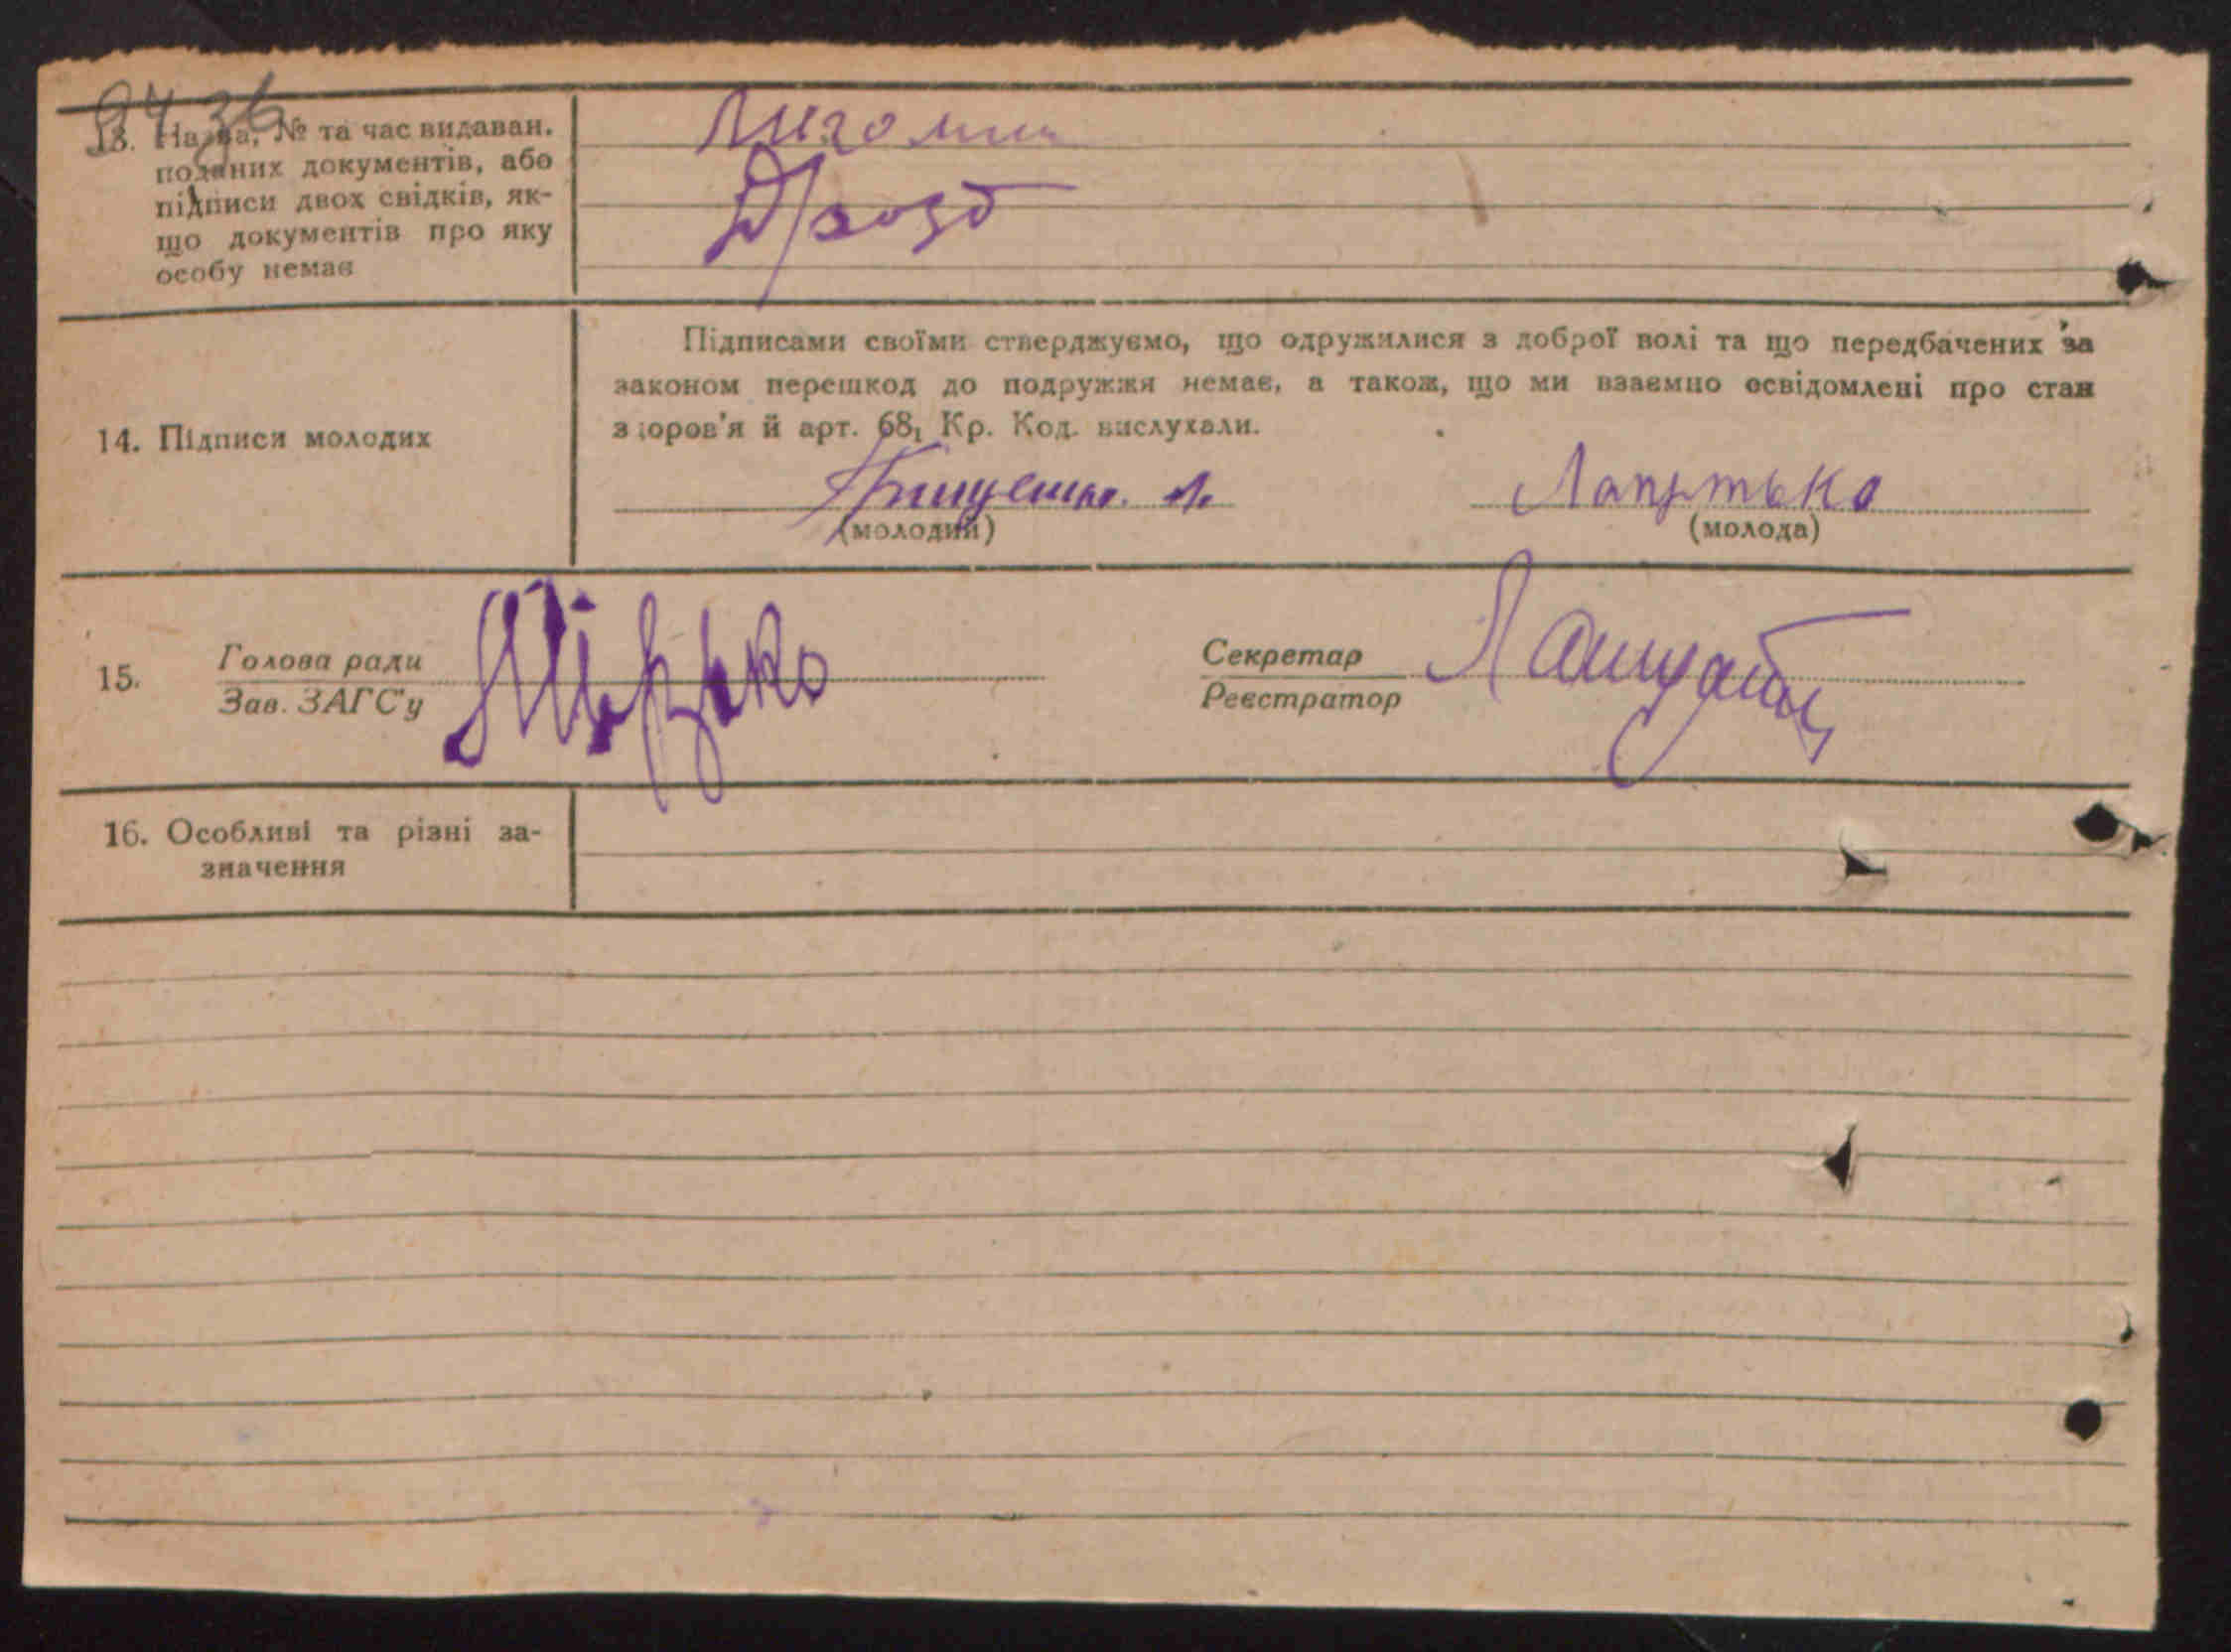 13. Назва, № та час видаван.
поданих документів, або
підписи двох свідків, як-
що документів про яку
особу немає
Дрозд
14. Підписи молодих
Підписами своїми стверджуємо, що одружилися з доброї волі та що передбачених за
законом перешкод до подружжя немає, а також, що ми взаємно освідомлені про стан
здоров'я й арт. 68₁ Кр. Код. вислухали.
(молодий)
(молода)
15.
Голова ради
Зав. ЗАГС'у
Секретар
Реєстратор
16. Особливі та різні за-
значення